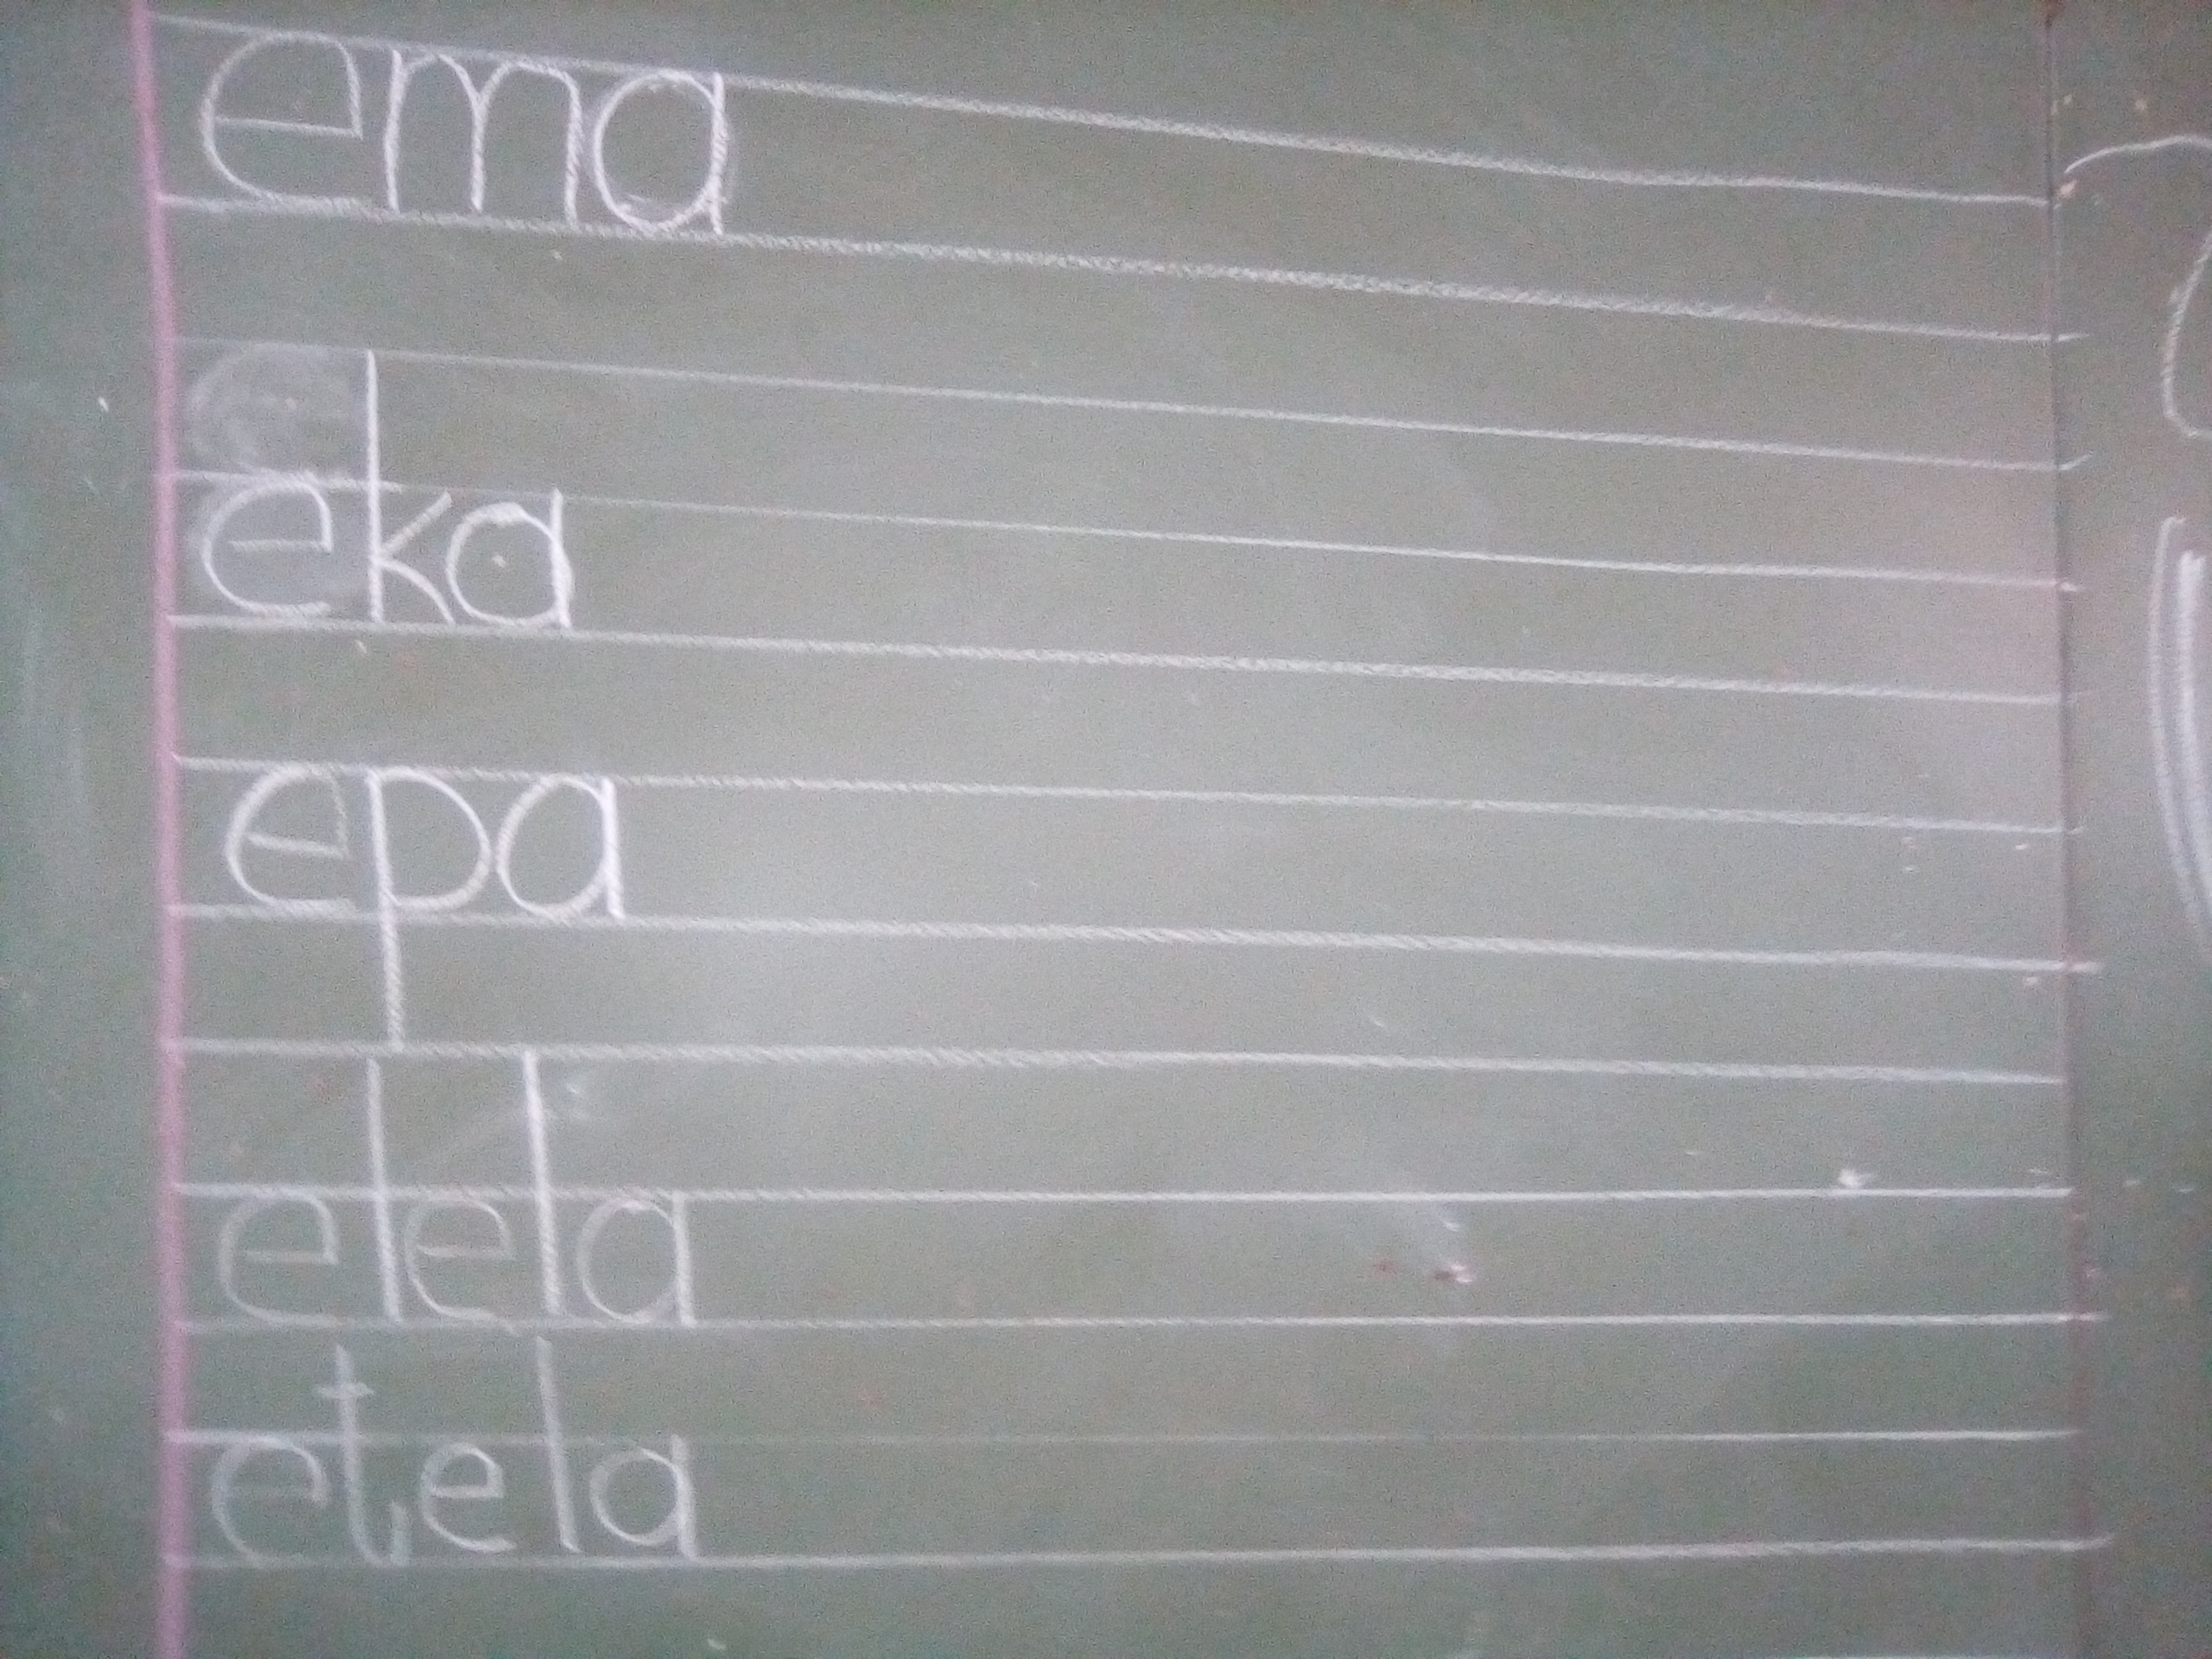 ema
eka
epa
elela
etela